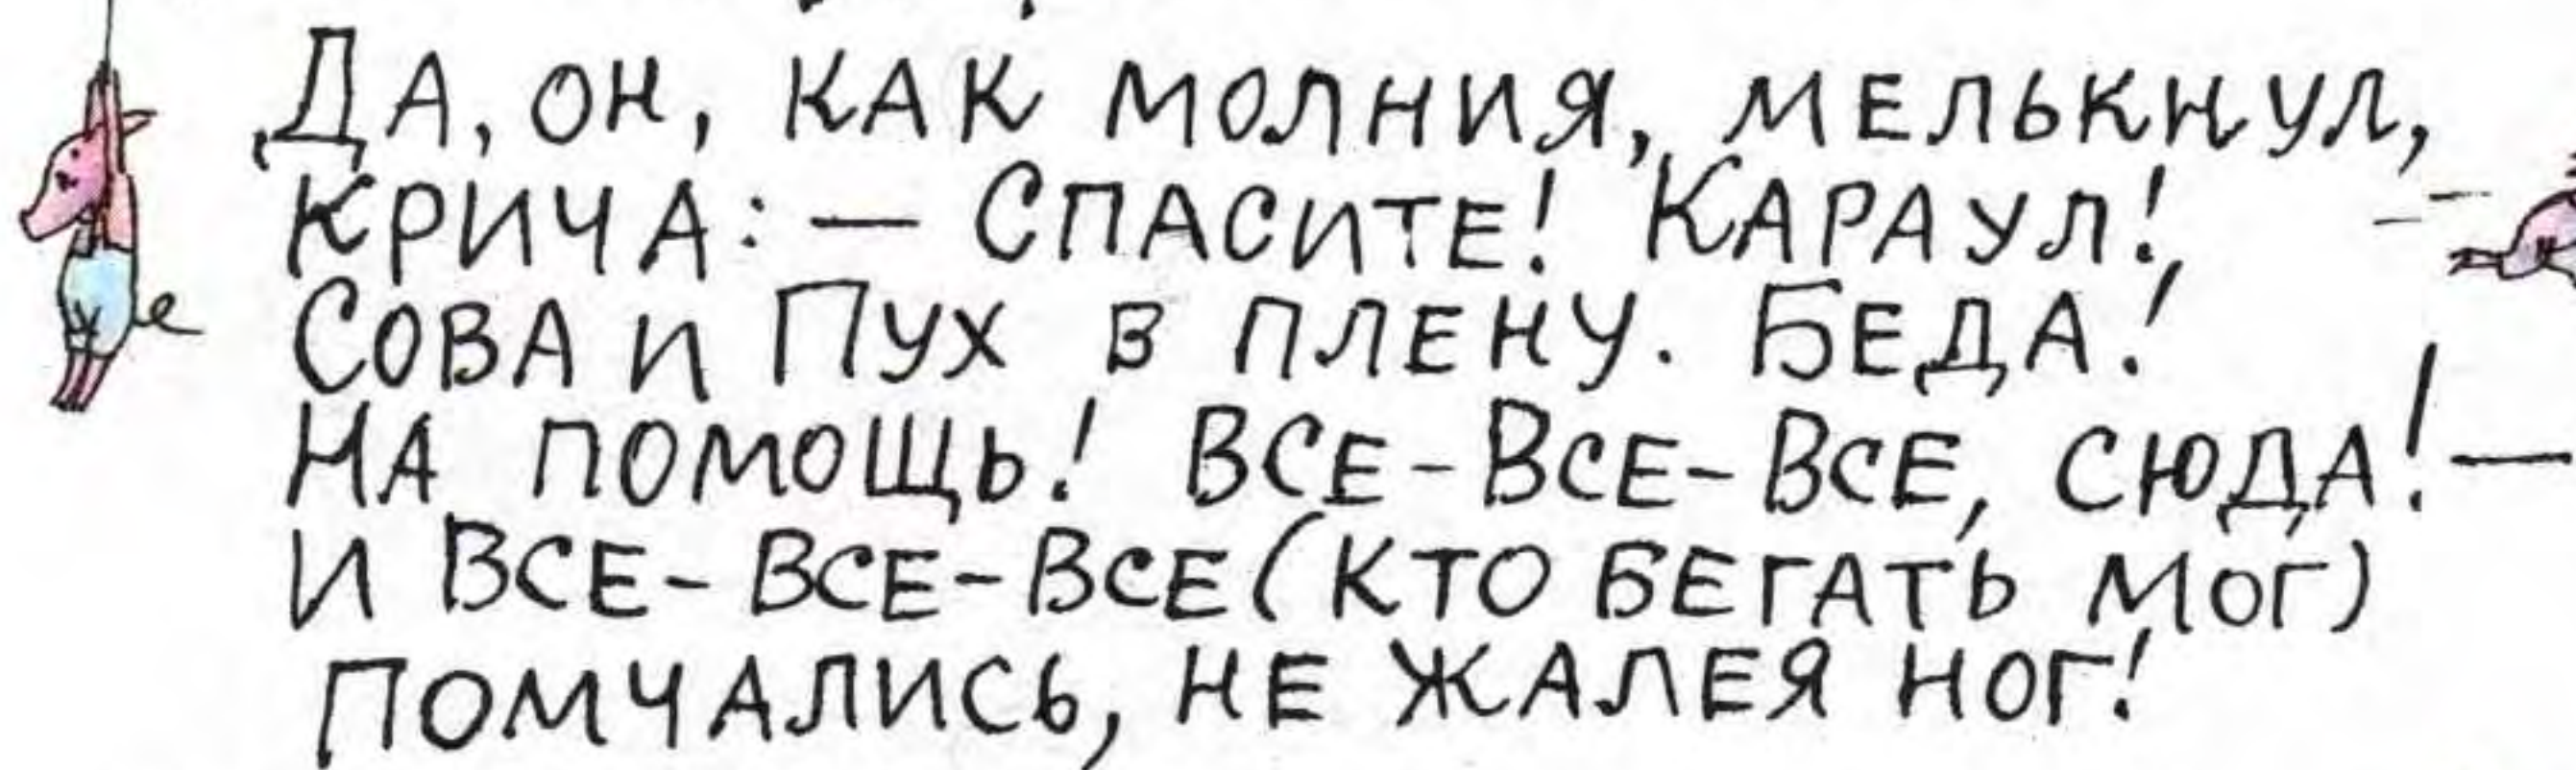 Да, он, как молния, мелькнул,
Крича: — Спасите! Караул!
Сова и Пух в плену. Беда!
На помощь! Все-Все-Все, сюда! —
И Все-Все-Все (кто бегать мог)
Помчались, не жалея ног!